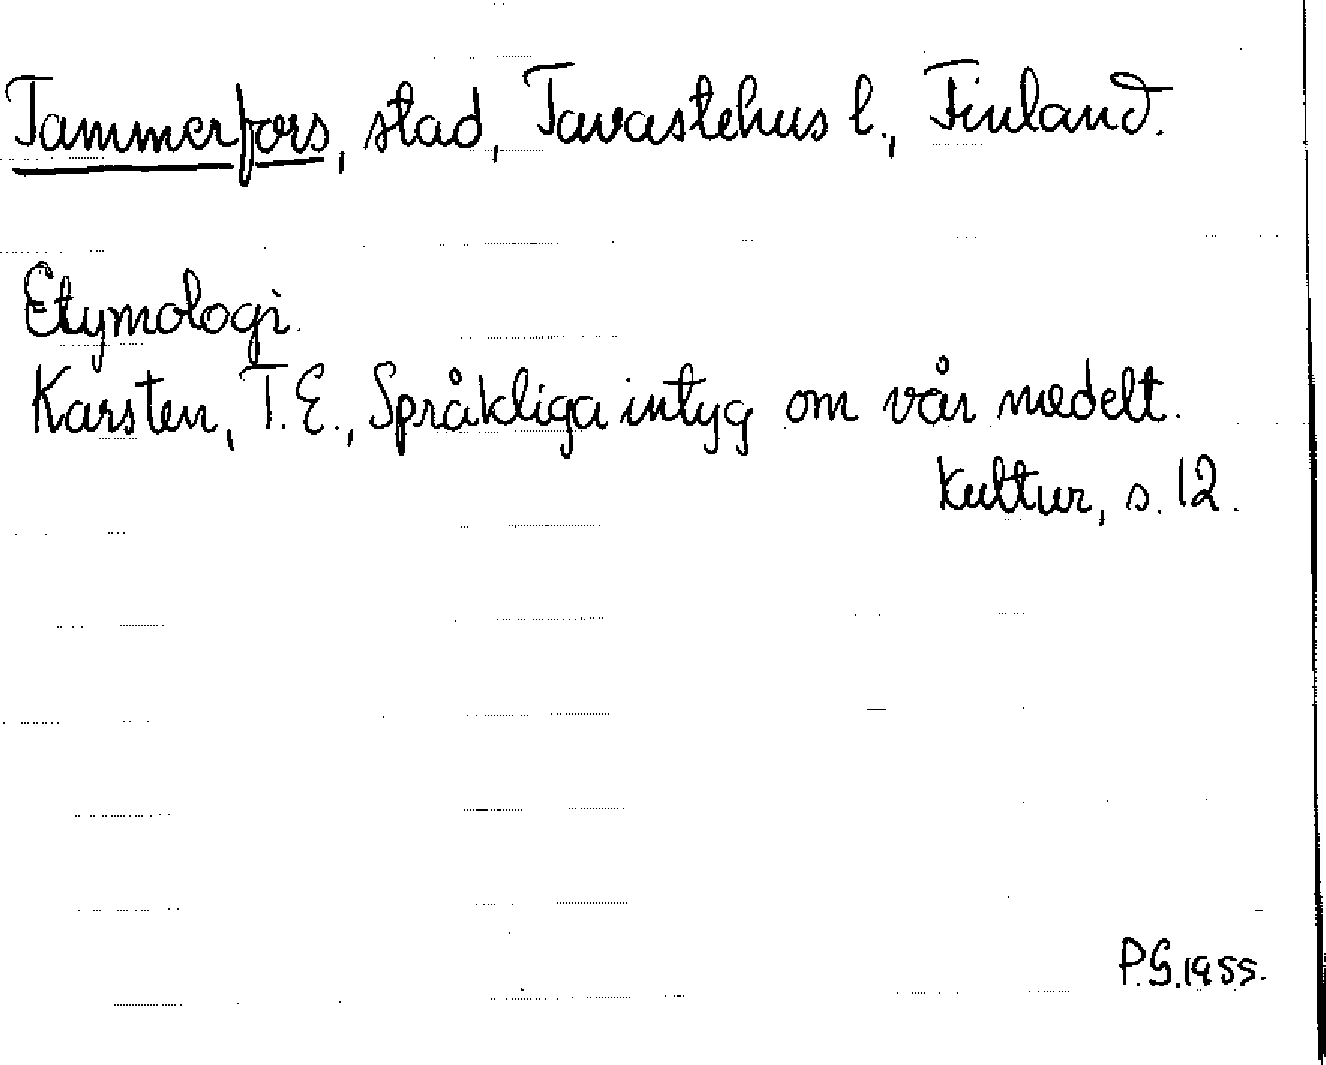 Tammerfors, stad, Tavastehus l., Finland.
Etymologi.
Karsten, T.E., Språkliga intyg om vår medelt.
kultur, s. 12.
P.G. 1955.